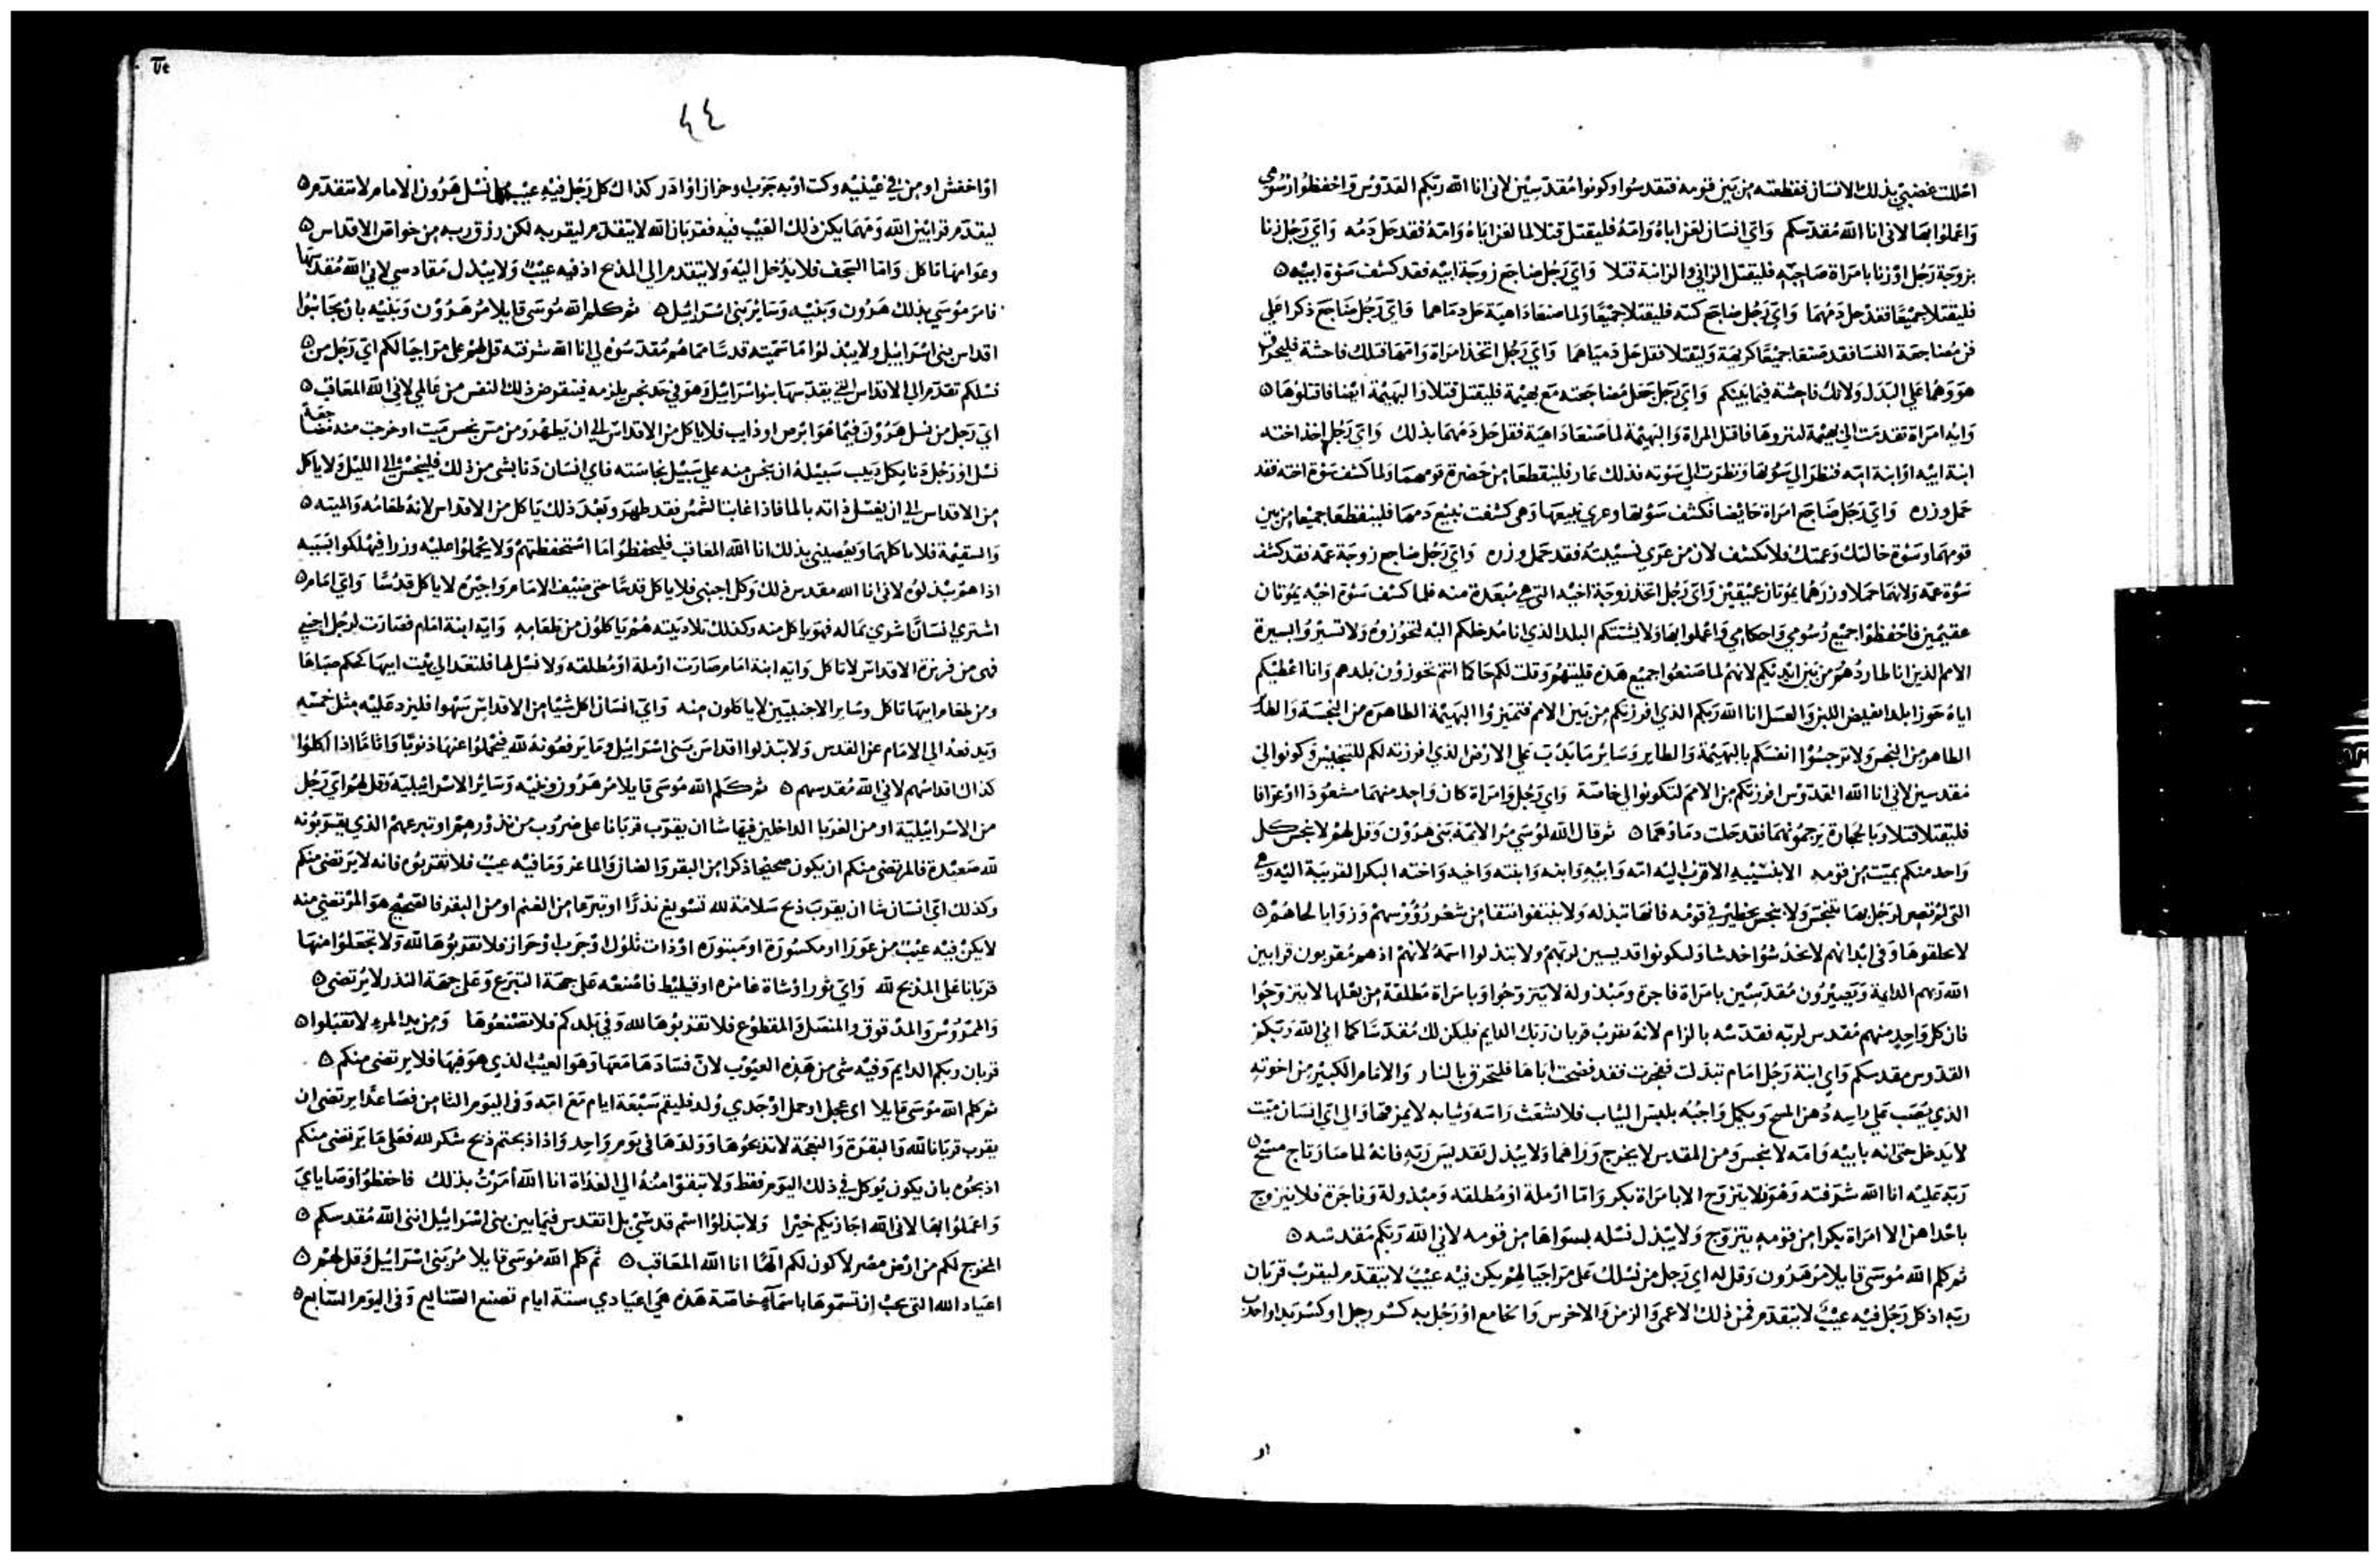 احللت غضبي بذلك الانسان فقطعته من بين قومه فتقدسوا وكونوا مقدسين لاني انا الله ربكم القدوس واحفظوا رسومي
واعملوا بها لاني انا الله مقدسكم واي انسان لعن اباه وامه فليقتل قتلا لما لعن اباه وامه فقد حل دمه واي رجل زنا
بزوجة رجل او زنا بامراة صاحبه فليقتل الزاني والزانية قتلا واي رجل ضاجع زوجة ابيه فقد كشف سوة ابيه
فليقتلا جميعا فقد حل دمهما واي رجل ضاجع كنته فليقتلا جميعا ولما صنعا داهية حل دماهما واي رجل ضاجع ذكرا علي
فن مضاجعة النسا فقد صنعا جميعا كريهة وليقتلا فقد حل دمياهما واي رجل اتخذ امراة وامها فتلك فاحشة فليحرق
هو وهما علي البدل ولا تك فاحشة فيما بينكم واي رجل جعل مضاجعته مع بهيمة فليقتل قتلا والبهيمة ايضا فاقتلوها
واية امراة تقدمت الي بهيمة لينزوها فاقتل المراة والبهيمة لما صنعا داهية فقد حل دمهما بذلك واي رجل اخذ اخته
ابنة ابيه او ابنة امه فنظر الي سوتها ونظرت الي سوته فذلك عار فلينقطعا من حضرة قومهما ولما كشف سوة اخته فقد
حمل وزره واي رجل ضاجع امراة حائضا فكشف سوتها وعري نبيعها وهي كشفت نبيع دمها فلينقطعا جميعا من بين
قومهما وسوة خالتك وعمتك فلا تكشف لان من عري نسيبته فقد حمل وزره واي رجل ضاجع زوجة عمه فقد كشف
سوة عمه ولانهما حملا وزرهما يموتان عقيمين واي رجل اتخذ زوجة اخيه التي هي مبعدة منه فلما كشف سوة اخيه يموتان
عقيمين فاحفظوا جميع رسومي واحكامي واعملوا بها ولا يشتتكم البلد الذي انا مدخلكم اليه لتحوزوه ولا تسيروا بسيرة
الامم الذين انا طاردهم من بين ايديكم لانهم لما صنعوا جميع هذه قليتهم وقلت لكم حاكما انتم تحوزون بلدهم وانا اعطيكم
اياه حوزا بلدا يفيض اللبن والعسل انا الله ربكم الذي افرزتكم من بين الامم فتميزوا البهيمة الطاهرة من النجسة والطائر
الطاهر من النجس ولا ترجسوا انفسكم بالبهيمة والطاير وسائر ما يدب علي الارض الذي افرزته لكم للتنجيس وكونوا لي
مقدسين لاني انا الله القدوس افرزتكم من الامم لتكونوا لي خاصة واي رجل وامراة كان واحد منهما مشعوذا او عرافا
فليقتلا قتلا وبالحجارة يرجمونهما فقد حلت دماؤهما ثم قال الله لموسي مر الائمة بني هرون وقل لهم لا ينجس كل
واحد منكم بميت من قومه الا بنسيبه الاقرب اليه امه وابيه وابنه وابنته واخيه واخته البكر القريبة اليه وهي
التي لم تصر لرجل بها يتنجس ولا ينجس بخطير في قومه فانها تبذله ولا ينتفوا نتفا من شعور رؤوسهم وزوايا لحاهم
لا يحلقوها وفي ابدانهم لا يخدشوا خدشا وليكونوا قديسين لربهم ولا يتذلوا اسمه لانهم اذ هم مقربون قرابين
الله ربهم الدايمة ويصيرون مقدسين بامراة فاجرة ومبذولة لا يتزوجوا وبامراة مطلقة من بعلها لا يتزوجوا
فان كل واحد منهم مقدس لربه فقدسه بالزام لانه يقرب قربان ربك الدايم فليكن لك مقدسا كما اني الله ربكم
القدوس مقدسكم واي ابنة رجل امام تبذلت ففجرت فقد فضحت اباها فلتحرق بالنار والامام الكبير من اخوته
الذي يصب علي راسه دهن المسح ويكمل واجبه بلبس الثياب فلا يشعث راسه وثيابه لا يمزقها والي اي انسان ميت
لا يدخل حتي انه بابيه وامه لا ينجس ومن المقدس لا يخرج وراهما ولا يبذل تقديس ربه فانه لما صار تاج مسح
ربه عليه انا الله شرفته وهو فلا يتزوج الا بامراة بكر واما ارملة او مطلقة ومبذولة وفاجرة فلا يتزوج
باحداهن الا امراة بكرا من قومه يتزوج ولا يبذل نسله بسواها من قومه لاني الله ربكم مقدسه
ثم كلم الله موسي قايلا مر هرون وقل له اي رجل من نسلك علي مر اجيالهم يكن فيه عيب لا يتقدم ليقرب قربان
ربه اذ كل رجل فيه عيب لا يتقدم فمن ذلك الاعمي والزمن والاخرس والجامع او رجل به كسر رجل او كسر يد او احدب
او
٤٤
او اخفش او من في عينيه وكت او به جرب او حزاز او ادر كذاك كل رجل فيه عيب من نسل هرون الامام لا يتقدم
ليقدم قرابين الله ومهما يكن ذلك العيب فيه فقربان الله لا يتقدم ليقربه لكن رزق ربه من خواص الاقداس
وعوامها ياكل واما السجف فلا يدخل اليه ولا يتقدم الي المذبح اذ فيه عيب ولا يبذل مقادسي لاني الله مقدسها
فامر موسي بذلك هرون وبنيه وسائر بني اسرائيل ثم كلم الله موسي قايلا مر هرون وبنيه بان يجانبوا
اقداس بني اسراييل ولا يبذلوا ما سميته قدسا مما هم مقدسوه لي انا الله شرفته قل لهم علي مر اجيالكم اي رجل من
نسلكم تقدم الي الاقداس التي يقدسها بنو اسرائيل وهو في حد نجس يلزمه فينقرض ذلك النفس من عالمي لاني الله المعاقب
اي رجل من نسل هرون فيما هو ابرص او ذايب فلا ياكل من الاقداس الي ان يطهر ومن مس نجس ميت او خرجت منه نطفة
نسل او رجل دنا بكل دبيب سبيله ان ينجس منه علي سبيل نجاسته فاي انسان دنا بشي من ذلك فلينجس الي الليل ولا ياكل
من الاقداس الي ان يغسل ذاته بالما فاذا غابت الشمس فقد طهر وبعد ذلك ياكل من الاقداس لانه طعامه والميتة
والسقيمة فلا ياكلها ويعصيني بذلك انا الله المعاقب فليحفظوا ما استحفظتهم ولا يحملوا عليه وزرا فيهلكوا بسببه
اذا هم يبذلوه لاني انا الله مقدس ذلك وكل اجنبي فلا ياكل قدسا حتي ضيف الامام واجيره لا ياكل قدسا واي امام
اشتري انسانا شري بماله فهو ياكل منه وكذلك تلاد بيته هم ياكلون من طعامه واية ابنة امام فصارت لرجل اجنبي
فهي من فريزة الاقداس لا تاكل واية ابنة امام صارت ارملة او مطلقة ولا نسل لها فلتعد الي بيت ابيها كحكم صباها
ومن طعام ابيها تاكل وساير الاجنبيين لا ياكلون منه واي انسان اكل شيا من الاقداس سهوا فليزد عليه مثل خمسه
ويدفعه الي الامام عن القدس ولا يبذلوا اقداس بني اسراييل وما يرفعونه لله فيحملوا عنها ذنوبا واثاما اذا اكلوا
كذاك اقداسهم لاني الله مقدسهم ثم كلم الله موسي قايلا مر هرون وبنيه وسائر الاسرائيلية وقل لهم اي رجل
من الاسرايلية او من الغربا الداخلين فيها شا ان يقرب قربانا علي ضروب من نذورهم او تبرعهم الذي يقربونه
لله صعيدة فالمرتضي منكم ان يكون صحيحا ذكرا من البقر والضان والماعز وما فيه عيب فلا تقربوه فانه لا يرتضي منكم
وكذلك اي انسان شا ان يقرب ذبح سلامة لله تسويغ نذرا او تبرعا من الغنم او من البقر فالصحيح هو المرتضي منه
لا يكن فيه عيب من عورا او مكسورة او مبتورة او ذات ثلول او جرب او حزاز فلا تقربوها لله ولا تجعلوا منها
قربانا علي المذبح لله واي ثور او شاة غامزه او قيليط فاصنعه علي جهة التبرع وعلي جهة النذر لا يرتضي
والممروس والمدقوق والمنصل والمقطوع فلا تقربوها لله وفي بلدكم فلا تصنعوها ومن يد المرء لا تقبلوا
قربان ربكم الدايم وفيه شي من هذه العيوب لان فسادها معها وهو العيب الذي هو فيها فلا يرتضي منكم
ثم كلم الله موسي قايلا اي عجل او حمل او جدي ولد فليقم سبعة ايام مع امه وفي اليوم الثامن فصاعدا يرتضي ان
يقرب قربانا لله والبقرة والنعجة لا تذبحوها وولدها في يوم واحد واذا ذبحتم ذبح شكر لله فعلي ما يرتضي منكم
اذبحوه بان يكون يوكل في ذلك اليوم فقط ولا تبقوا منه الي الغداة انا الله امرت بذلك فاحفظوا وصاياي
واعملوا بها لاني الله اجازيكم خيرا ولا تبذلوا اسم قدسي بل اتقدس فيما بين بني اسراييل انني الله مقدسكم
المخرج لكم من ارض مصر لاكون لكم الها انا الله المعاقب ثم كلم الله موسي قايلا مر بني اسراييل وقل لهم
اعياد الله التي يجب ان تسموها باسماء خاصة هذه هي اعيادي ستة ايام تصنع الصنايع وفي اليوم السابع